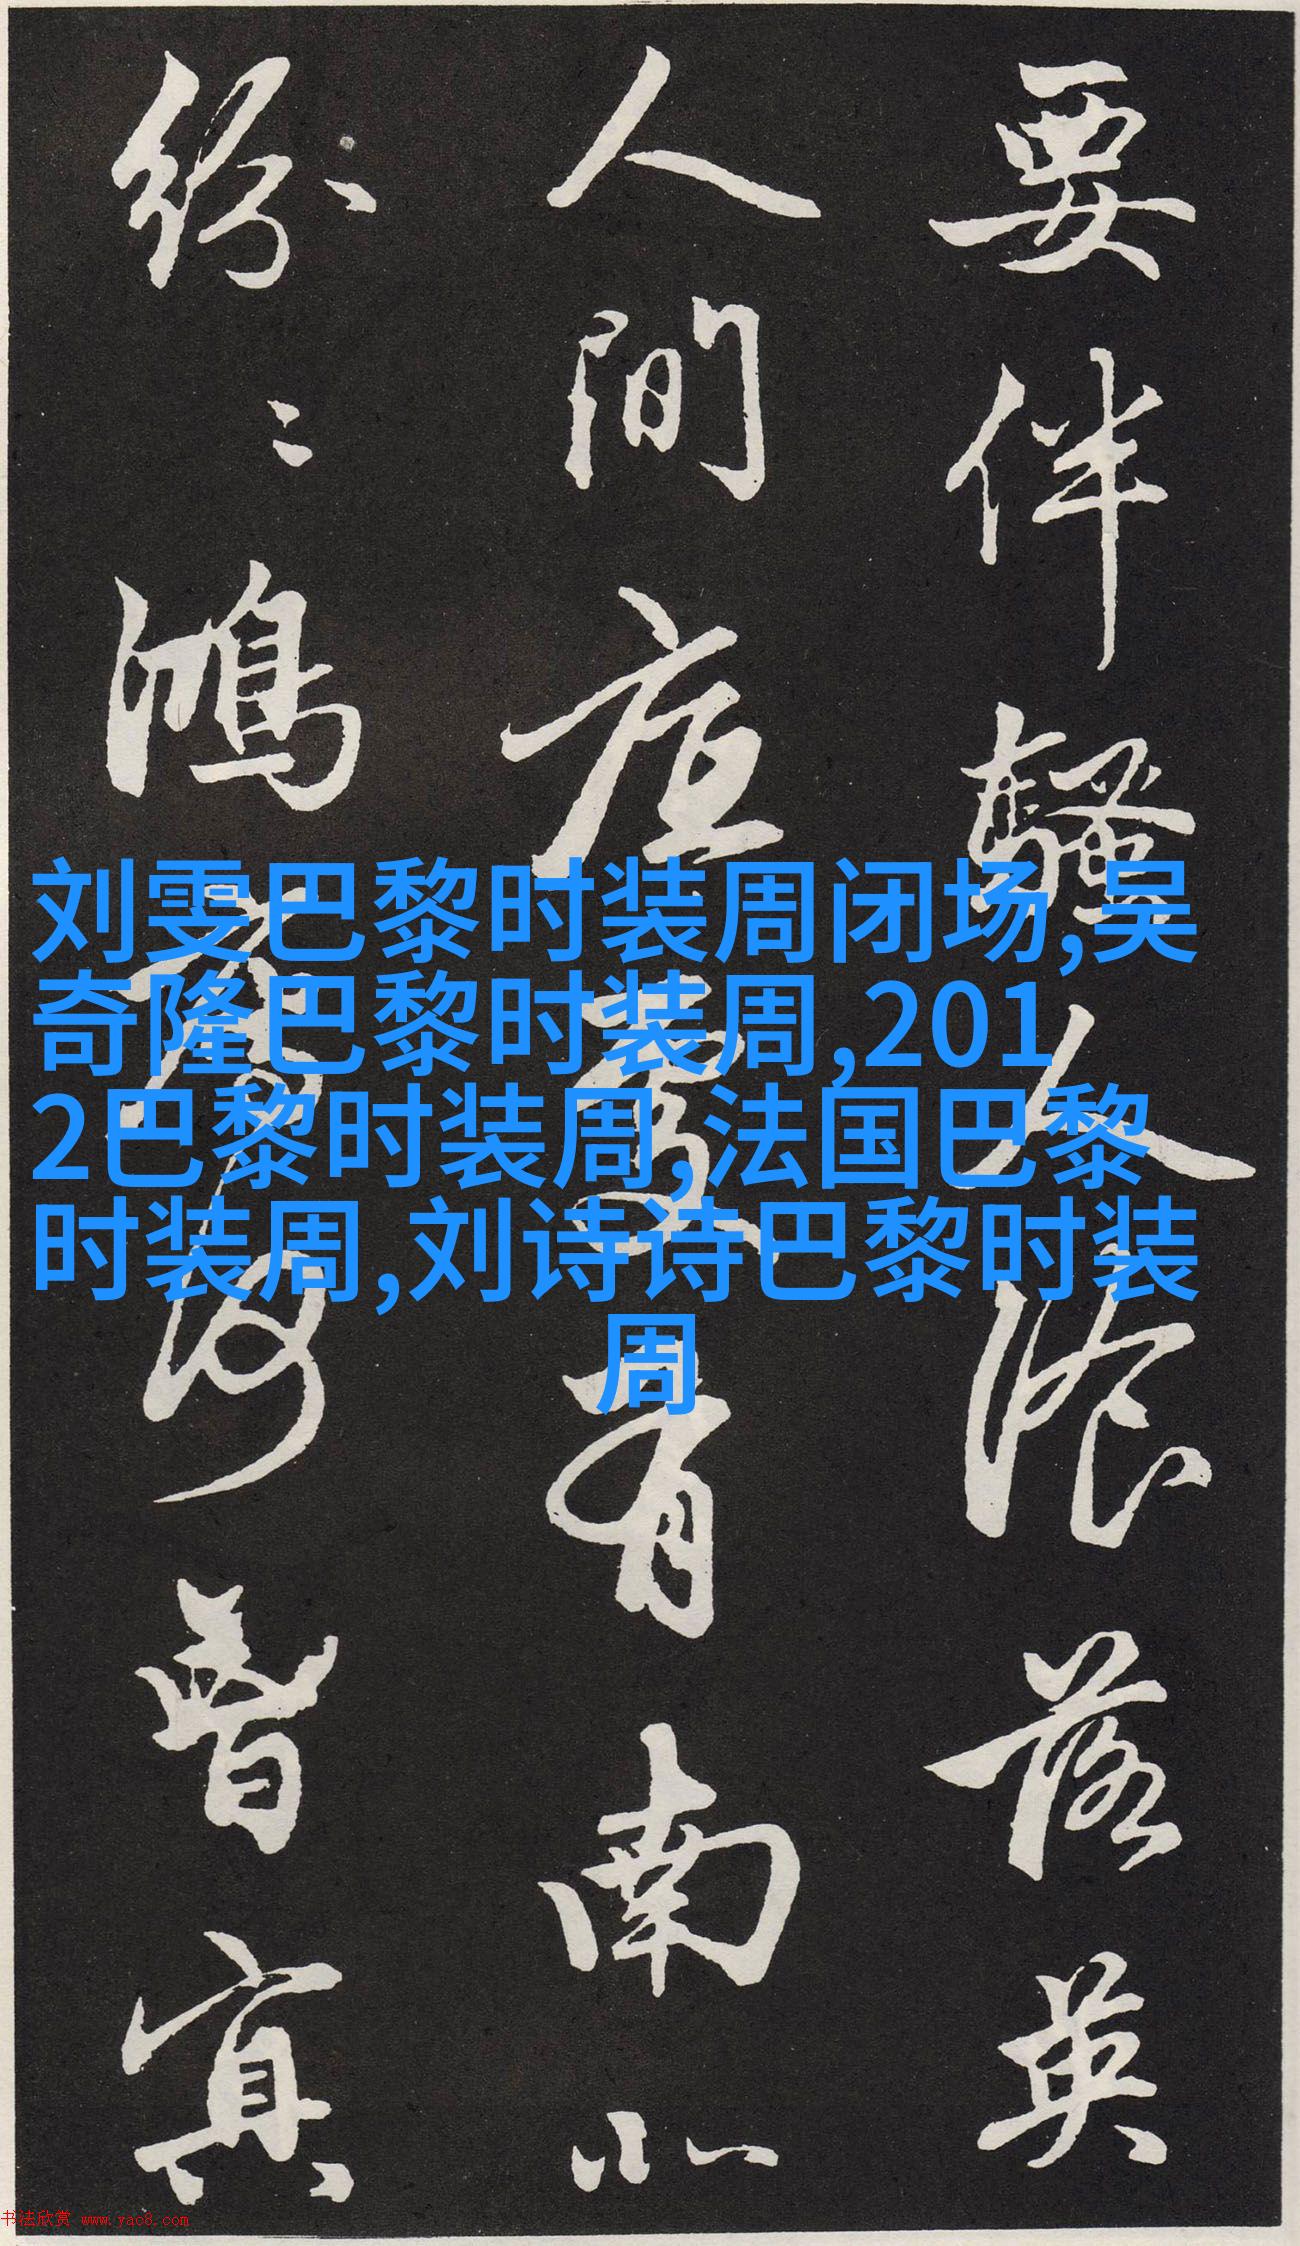 要伴騷人湌落英
人間底處有南北
紛〻鴻雁何曾冥
刘雯巴黎时装周闭场,吴
奇隆巴黎时装周,201
2巴黎时装周,法国巴黎
时装周,刘诗诗巴黎时装
周
书法欣赏 www.yac8.com